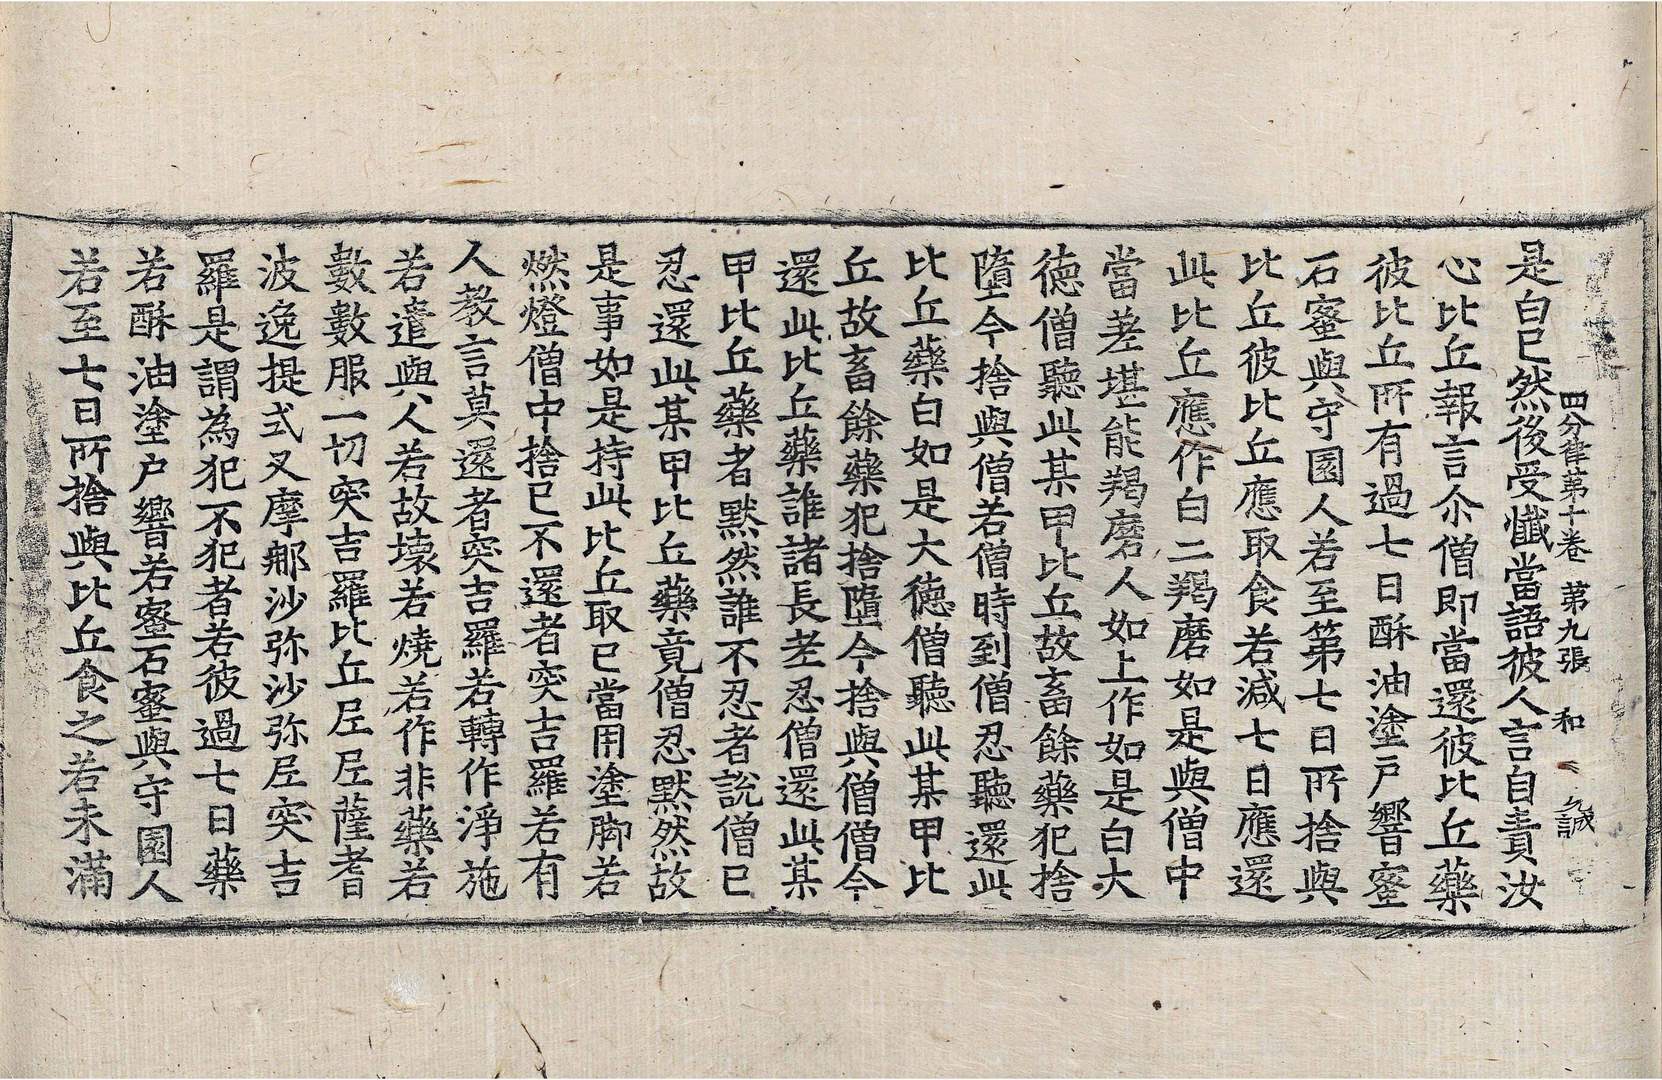 四分律第十卷 第九張 和 誠
是白已然後受懺當語彼人言自責汝
心比丘報言尒僧即當還彼比丘藥
彼比丘所有過七日酥油塗戶響蜜
石蜜與守園人若至第七日所捨與
比丘彼比丘應取食若減七日應還
此比丘應作白二羯磨如是與僧中
當差堪能羯磨人如上作如是白大
德僧聽此某甲比丘故畜餘藥犯捨
墮今捨與僧若僧時到僧忍聽還此
比丘藥白如是大德僧聽此某甲比
丘故畜餘藥犯捨墮今捨與僧僧今
還此比丘藥誰諸長老忍僧還此某
甲比丘藥者默然誰不忍者說僧已
忍還此某甲比丘藥竟僧忍默然故
是事如是持此比丘取已當用塗脚若
燃燈僧中捨已不還者突吉羅若有
人教言莫還者突吉羅若轉作淨施
若遣與人若故壞若燒若作非藥若
數數服一切突吉羅比丘尼尼薩耆
波逸提式叉摩那沙弥沙弥尼突吉
羅是謂為犯不犯者若彼過七日藥
若酥油塗戶響若蜜石蜜與守園人
若至七日所捨與比丘食之若未滿